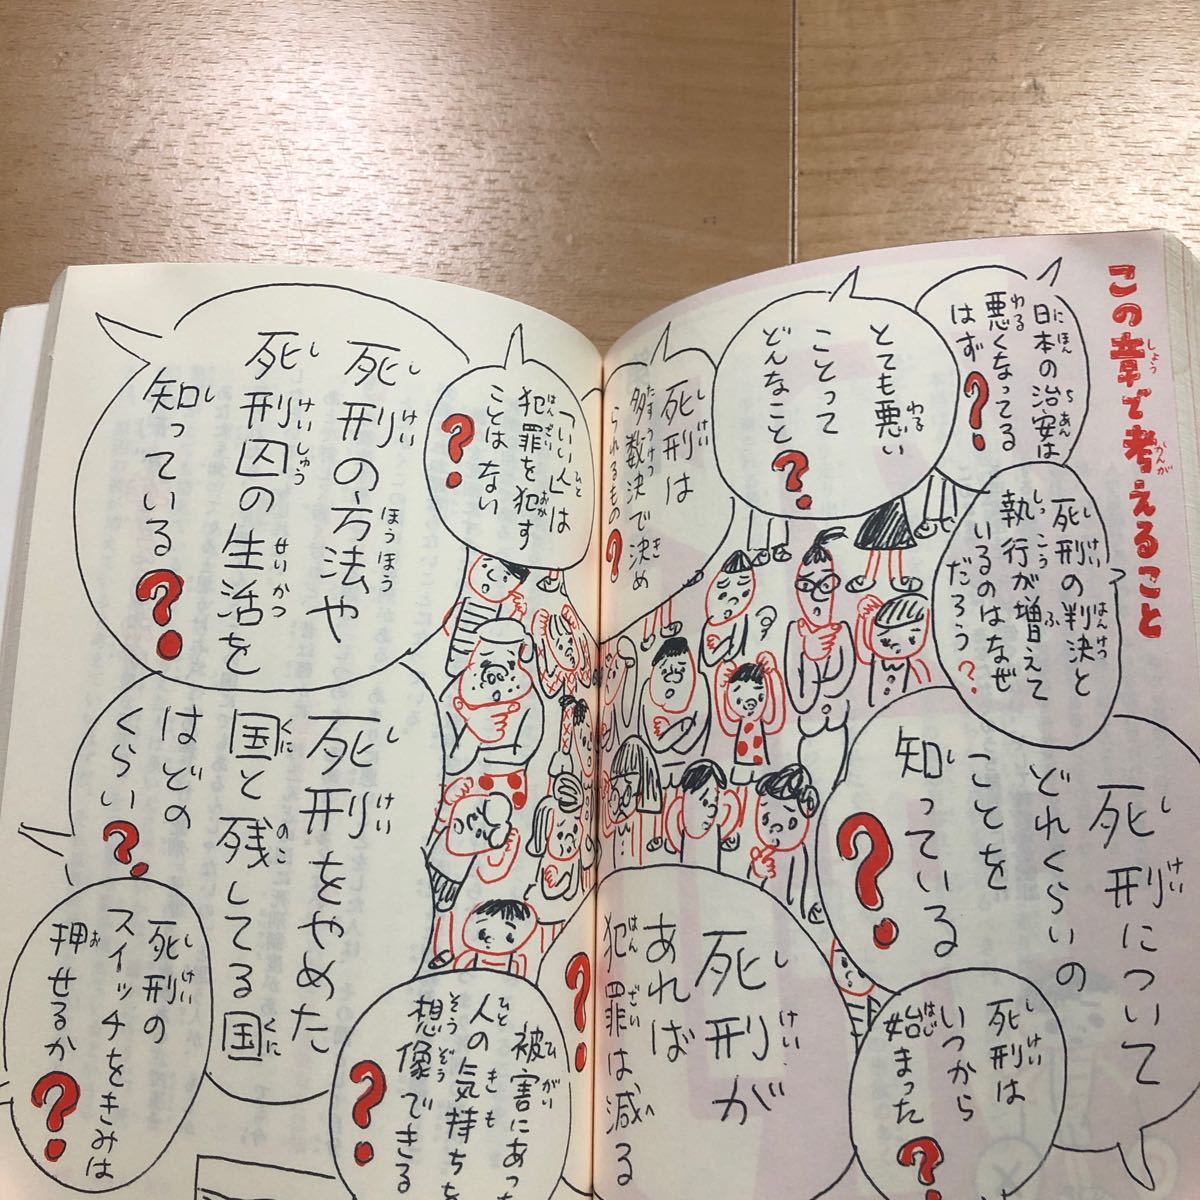 この章で考えること
日本の治安は
悪くなってる
はず?
とても悪い
ことって
どんなこと?
死刑の判決と
執行が増えて
いるのはなぜ
だろう?
死刑は
多数決で決め
られるもの?
死刑について
どれくらいの
ことを
知っている?
死刑は
いつから
始まった?
死刑が
あれば
犯罪は減る
?
「いい人」は
犯罪を犯す
ことはない
?
死刑の方法や
死刑囚の生活を
知っている?
死刑をやめた
国と残してる国
はどの
くらい?
被害にあっ
人の気持ちを
想像できる
?
死刑の
スイッチをきみは
押せるか?